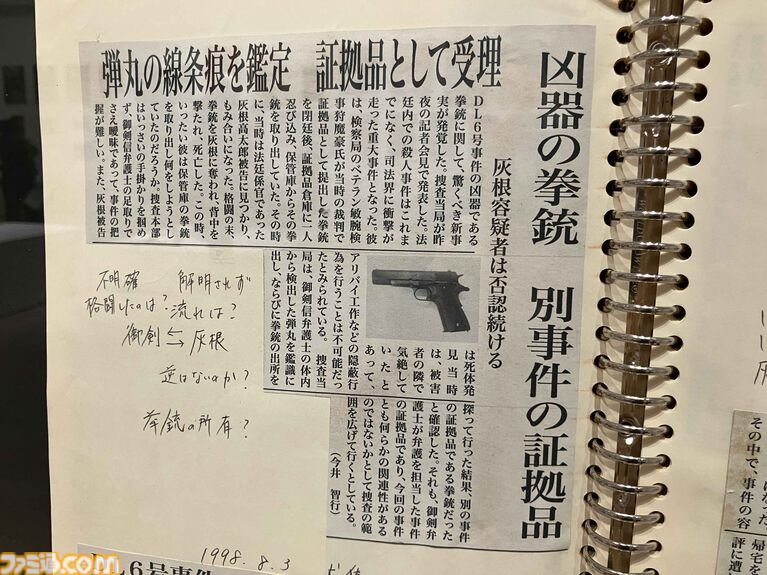 凶器の拳銃　別事件の証拠品
灰根容疑者は否認続ける
弾丸の線条痕を鑑定　証拠品として受理
ＤＬ６号事件の凶器である
拳銃に関して、驚くべき新事
実が発覚した。捜査当局が昨
夜の記者会見で発表した。法
廷内での殺人事件はこれま
でになく、司法界に衝撃が
走った重大事件となった。彼
は、検察局のベテラン敏腕検
事狩魔豪氏が当時の裁判で
証拠品として提出した拳銃
を閉廷後、証拠品倉庫に一人
忍び込み、保管庫からその拳
銃を取り出していた。その時
に、当時は法廷係官であった
灰根高太郎被告に見つかり、
もみ合いになった。格闘の末、
拳銃を灰根に奪われ、背中を
撃たれ、死亡した。この時、
いったい彼は保管庫の拳銃
を取り出し何をしようとし
ていたのだろうか。捜査本部
はいっさいの手掛かりを掴め
ず、御剣信弁護士の足取りで
さえ曖昧であって、事件の把
握が難しい。また、灰根被告
は死体発
見当時
は、被害
者の隣で
気絶して
いたと
あって、
アリバイ工作などの隠蔽行
為を行うことは不可能だっ
たとみられている。　捜査当
局は、御剣信弁護士の体内
から検出した弾丸を鑑識に
出し、ならびに拳銃の出所を
探って行った結果、別の事件
の証拠品である拳銃だった
と確認した。それも、御剣弁
護士が弁護を担当した事件
の証拠品であり、今回の事件
とも何らかの関連性がある
のではないかとして捜査の範
囲を広げて行くとしている。
（今井　智行）
不明確　解明されず
格闘したのは？流れは？
御剣⇆灰根
逆はないのか？
拳銃の所有？
1998.8.3
ＤＬ６号事件
その中で、事件の容
帰宅を
評に遭
ファミ通.com